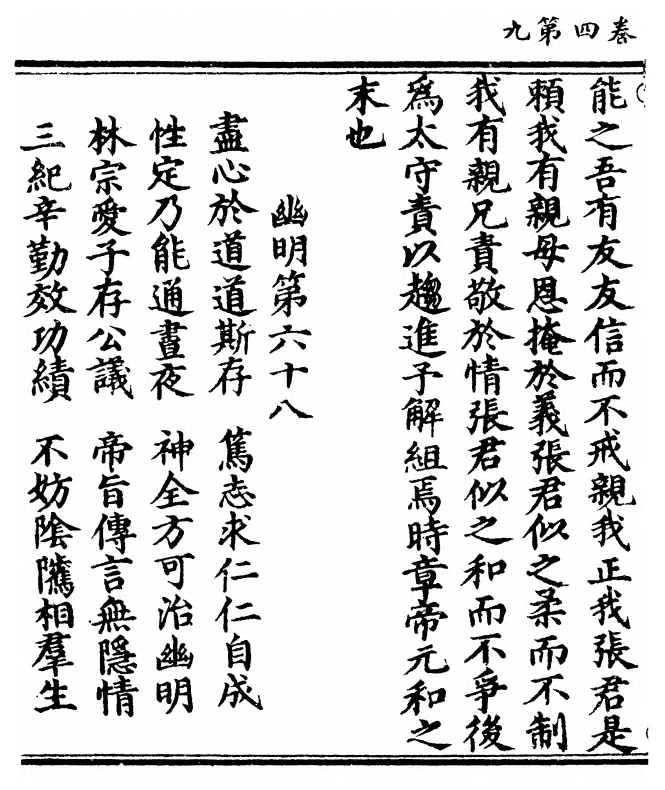 卷四第九
能之吾有友友信而不戒親我正我張君是
賴我有親母恩掩於義張君似之柔而不制
我有親兄責敬於情張君似之和而不爭後
為太守責以趨進子解組焉時章帝元和之
末也
幽明第六十八
盡心於道道斯存 篤志求仁仁自成
性定乃能通晝夜 神全方可治幽明
林宗愛子存公議 帝旨傳言無隱情
三紀辛勤效功績 不妨陰騭相羣生